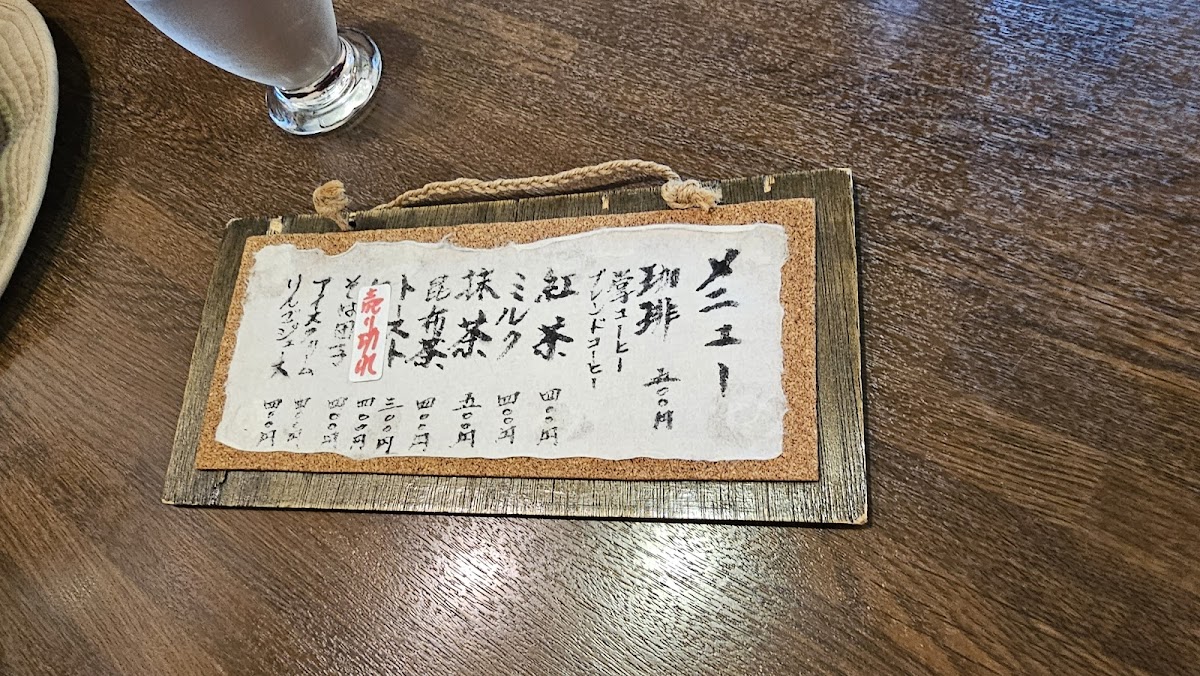 メニュー
珈琲 五〇〇円
コーヒー
ブレンドコーヒー
紅茶 四〇〇円
ミルク 四〇〇円
抹茶 五〇〇円
昆布茶 四〇〇円
トースト 三〇〇円
売り切れ 四〇〇円
そば団子 四〇〇円
アイスクリーム 四〇〇円
りんごジュース 四〇〇円